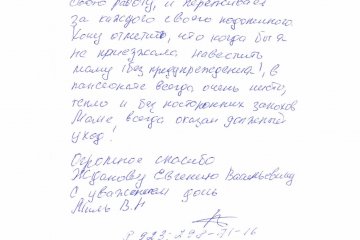 свою работу, и переживает
за каждого своего подопечного.
Хочу отметить, что когда бы я
не приезжала навестить
маму (без предупреждения!), в
пансионате всегда очень чисто,
тепло и без посторонних запахов
Маме всегда оказан должный
уход!
Огромное спасибо
Жданову Евгению Васильевичу
С уважением дочь
Миль В.Н